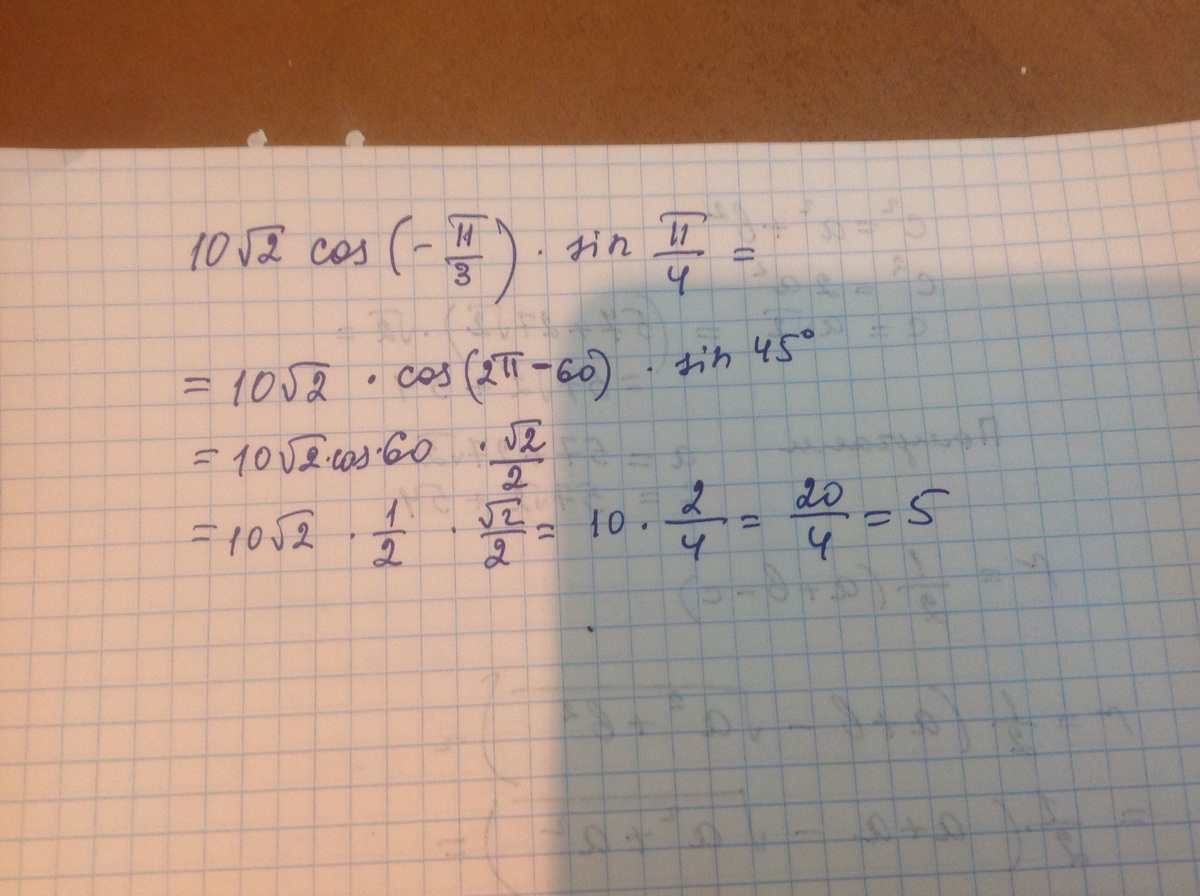 10√2 cos(-π/3) · sin π/4 =
= 10√2 · cos(2π-60) · sin 45°
= 10√2·cos·60 · √2/2
= 10√2 · 1/2 · √2/2 = 10 · 2/4 = 20/4 = 5